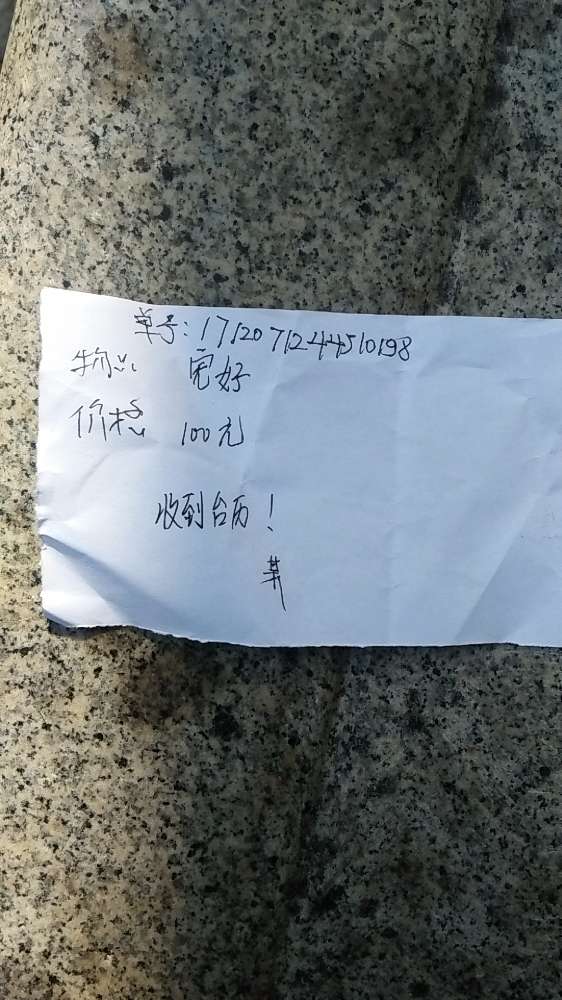 单号:1712071244510198
物品 完好
价格 100元
收到台历!